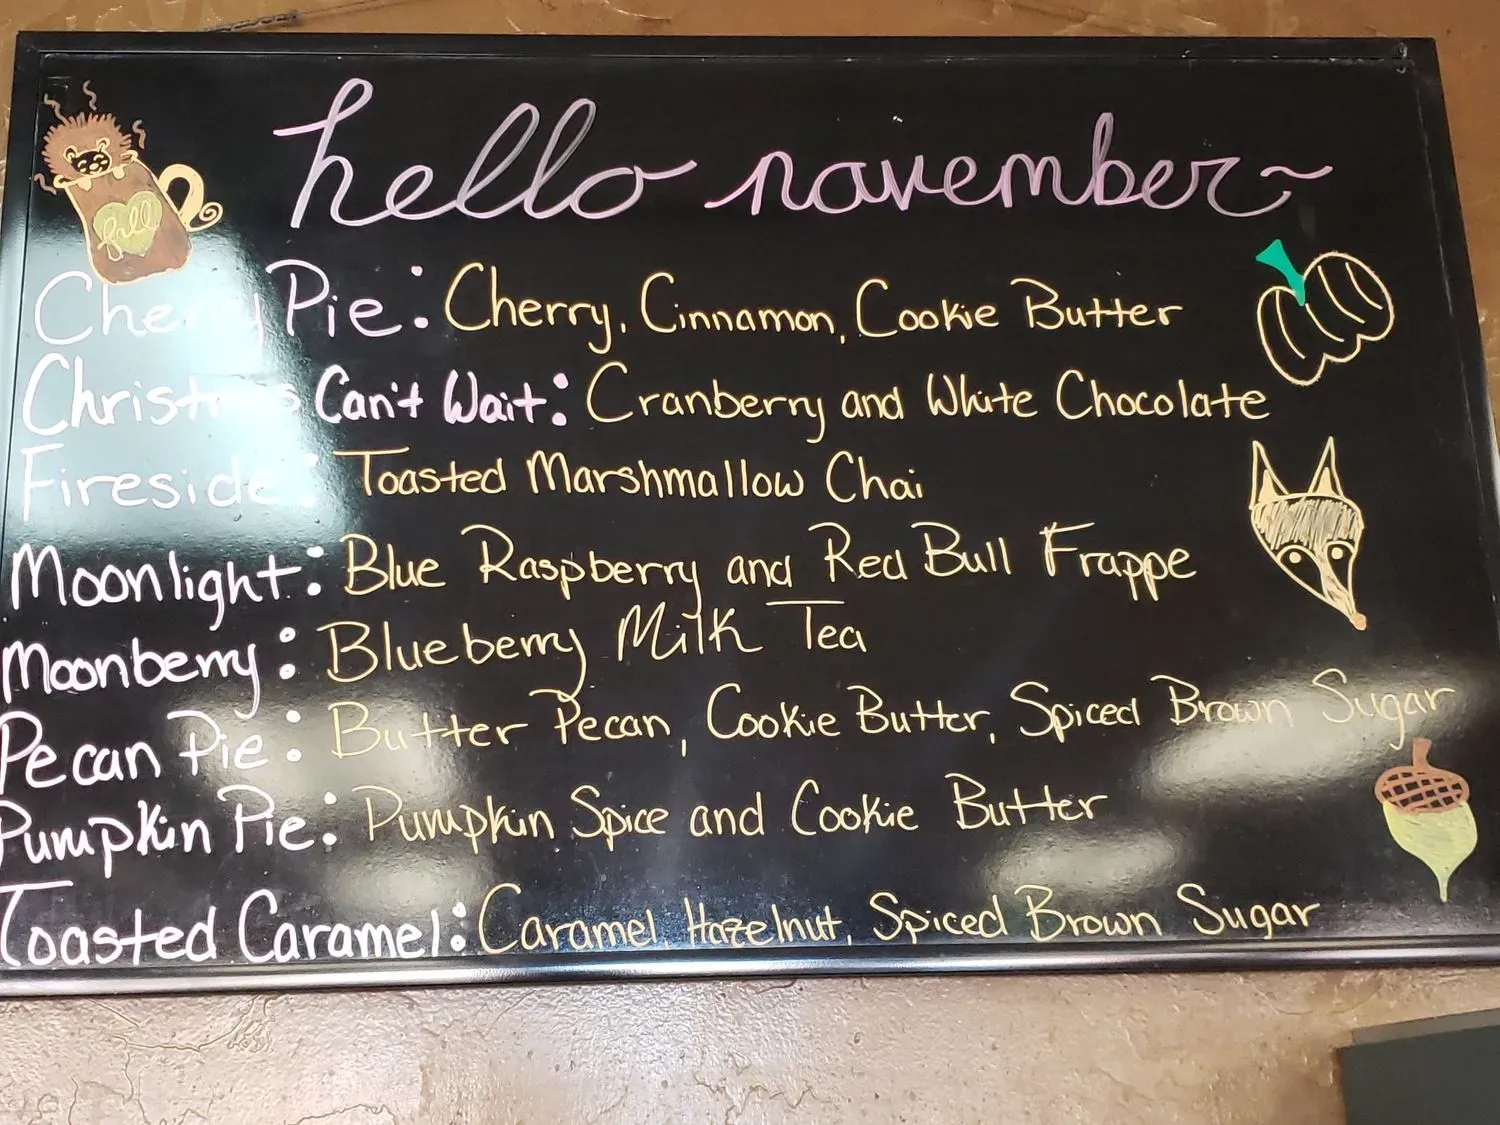 hello november~
fall
Cherry Pie: Cherry, Cinnamon, Cookie Butter
Christmas Can't Wait: Cranberry and White Chocolate
Fireside: Toasted Marshmallow Chai
Moonlight: Blue Raspberry and Red Bull Frappe
Moonberry: Blueberry Milk Tea
Pecan Pie: Butter Pecan, Cookie Butter, Spiced Brown Sugar
Pumpkin Pie: Pumpkin Spice and Cookie Butter
Toasted Caramel: Caramel, Hazelnut, Spiced Brown Sugar